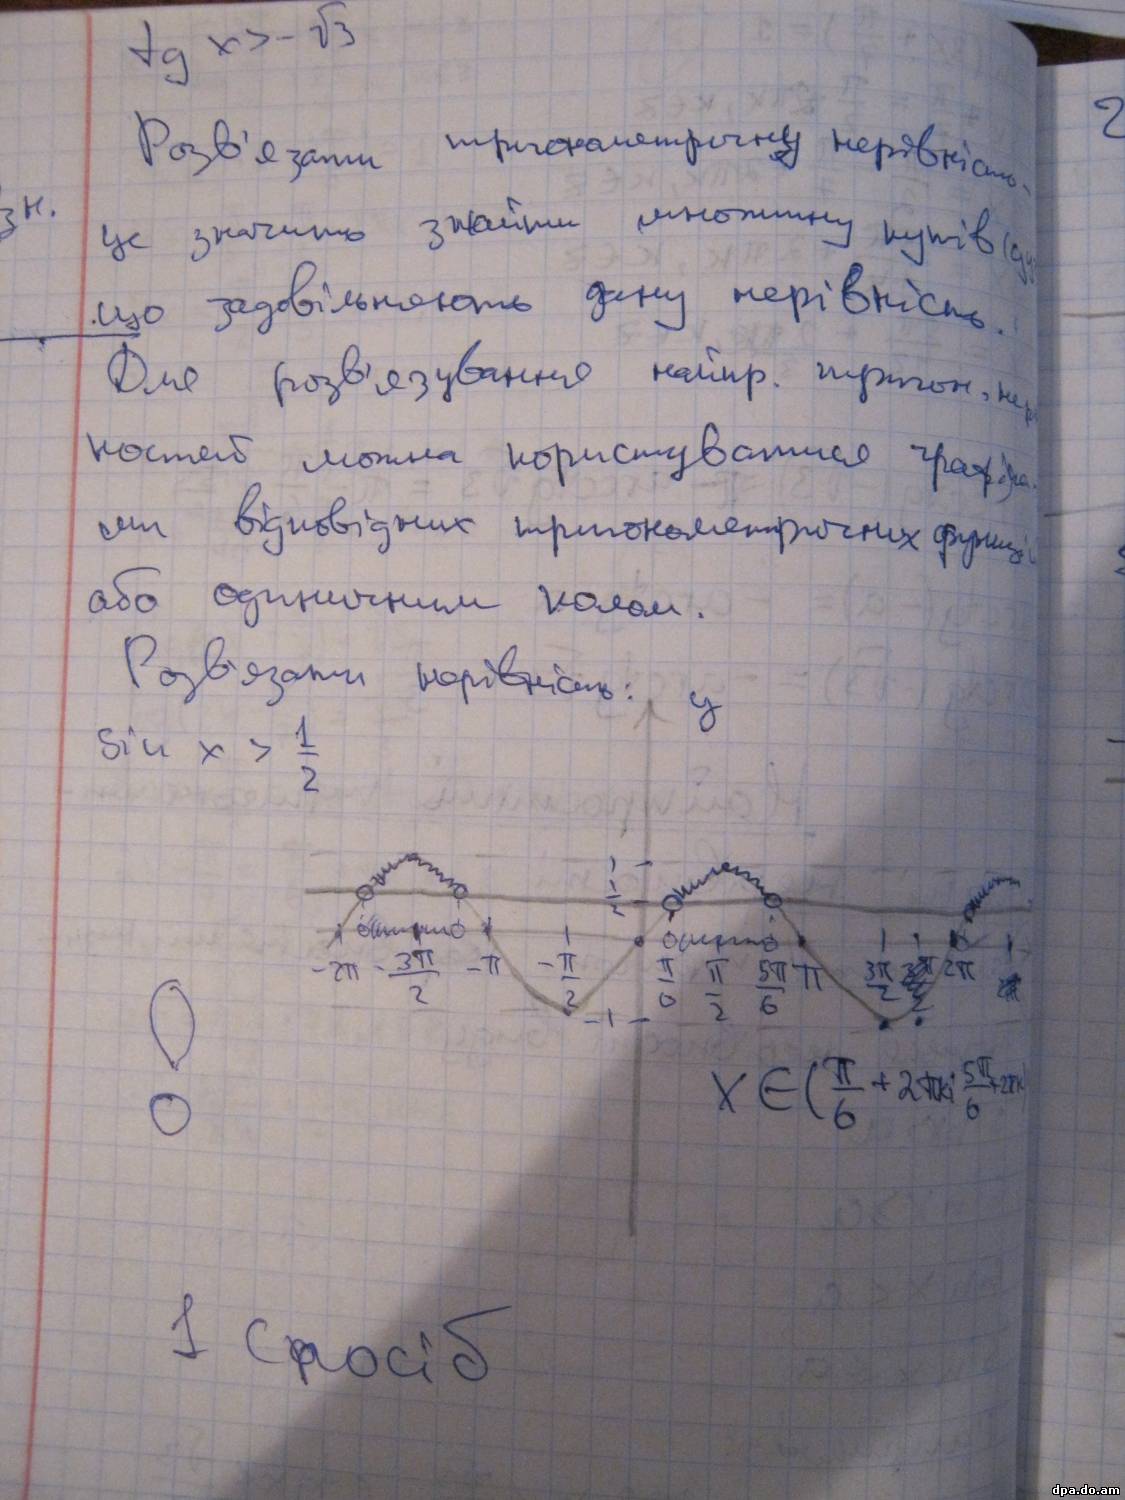 tg x > -√3
Розв'язати тригонометричну нерівність-
зн.
це значить знайти множину кутів (
що задовільняють дану нерівність.
Для розв'язування найпр. тригон. нер
ностей можна користуватися графіка
ми відповідних тригонометричних функцій
або одиничним колом.
Розв'язати нерівність:
y
sin x > 1/2
1
1/2
-2π -3π/2 -π -π/2 π/6 π/2 5π/6 π 3π/2 2π
-1
x ∈ (π/6 + 2πk; 5π/6 + 2πk)
!
1 Спосіб
2
dpa.do.am